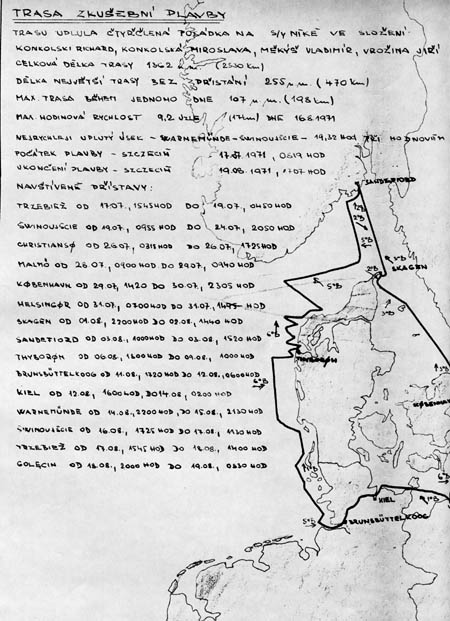 TRASA ZKUŠEBNÍ PLAVBY
TRASU UPLULA ČTYŘČLENÁ POSÁDKA NA S/Y NIKÉ VE SLOŽENÍ
KONKOLSKI RICHARD, KONKOLSKÁ MIROSLAVA, MĚKYŠ VLADIMÍR, VROŽINA JIŘÍ
CELKOVÁ DÉLKA TRASY 1362 n.m. (2530 km)
DÉLKA NEJVĚTŠÍ TRASY BEZ PŘISTÁNÍ 255 n.m. (470 km)
MAX. TRASA BĚHEM JEDNOHO DNE 107 n.m. (198 km)
MAX. HODINOVÁ RYCHLOST 9,2 UZLE (17 km) DNE 16.8.1971
NEJRYCHLEJI UPLUTÝ ÚSEK - WARNEMÜNDE - ŚWINOUJŚCIE - 19,22 HOD
POČÁTEK PLAVBY - SZCZECIN 17.07.1971, 0819 HOD
UKONČENÍ PLAVBY - SZCZECIN 19.08.1971, 0707 HOD
NAVŠTÍVENÉ PŘÍSTAVY:
TRZEBIEŻ OD 17.07., 1545 HOD DO 19.07., 0450 HOD
ŚWINOUJŚCIE OD 19.07., 0955 HOD DO 24.07., 2050 HOD
CHRISTIANSØ OD 26.07., 0315 HOD DO 26.07., 1725 HOD
MALMÖ OD 28.07., 0900 HOD DO 29.07., 0940 HOD
KØBENHAVN OD 29.07., 1420 DO 30.07., 2305 HOD
HELSINGØR OD 31.07., 0700 HOD DO 31.07., HOD
SKAGEN OD 01.08., 2200 HOD DO 02.08., 1440 HOD
SANDEFJORD OD 03.08., 1000 HOD DO 03.08., 1520 HOD
THYBORØN OD 06.08., 1800 HOD DO 09.08., 1000 HOD
BRUNSBÜTTELKOOG OD 11.08., 1320 HOD DO 12.08., 0600 HOD
KIEL OD 12.08., 1600 HOD, DO 14.08., 0200 HOD
WARNEMÜNDE OD 14.08., 2200 HOD, DO 15.08., 2130 HOD
ŚWINOUJŚCIE OD 16.08., 1725 HOD DO 17.08., 1130 HOD
TRZEBIEŻ OD 17.08., 1545 HOD DO 18.08., 1400 HOD
GOLĘCIN OD 18.08., 2000 HOD DO 19.08., 0330 HOD
SANDEFJORD
SKAGEN
THYBORØN
KØBENHAVN
KIEL
BRUNSBÜTTELKOOG